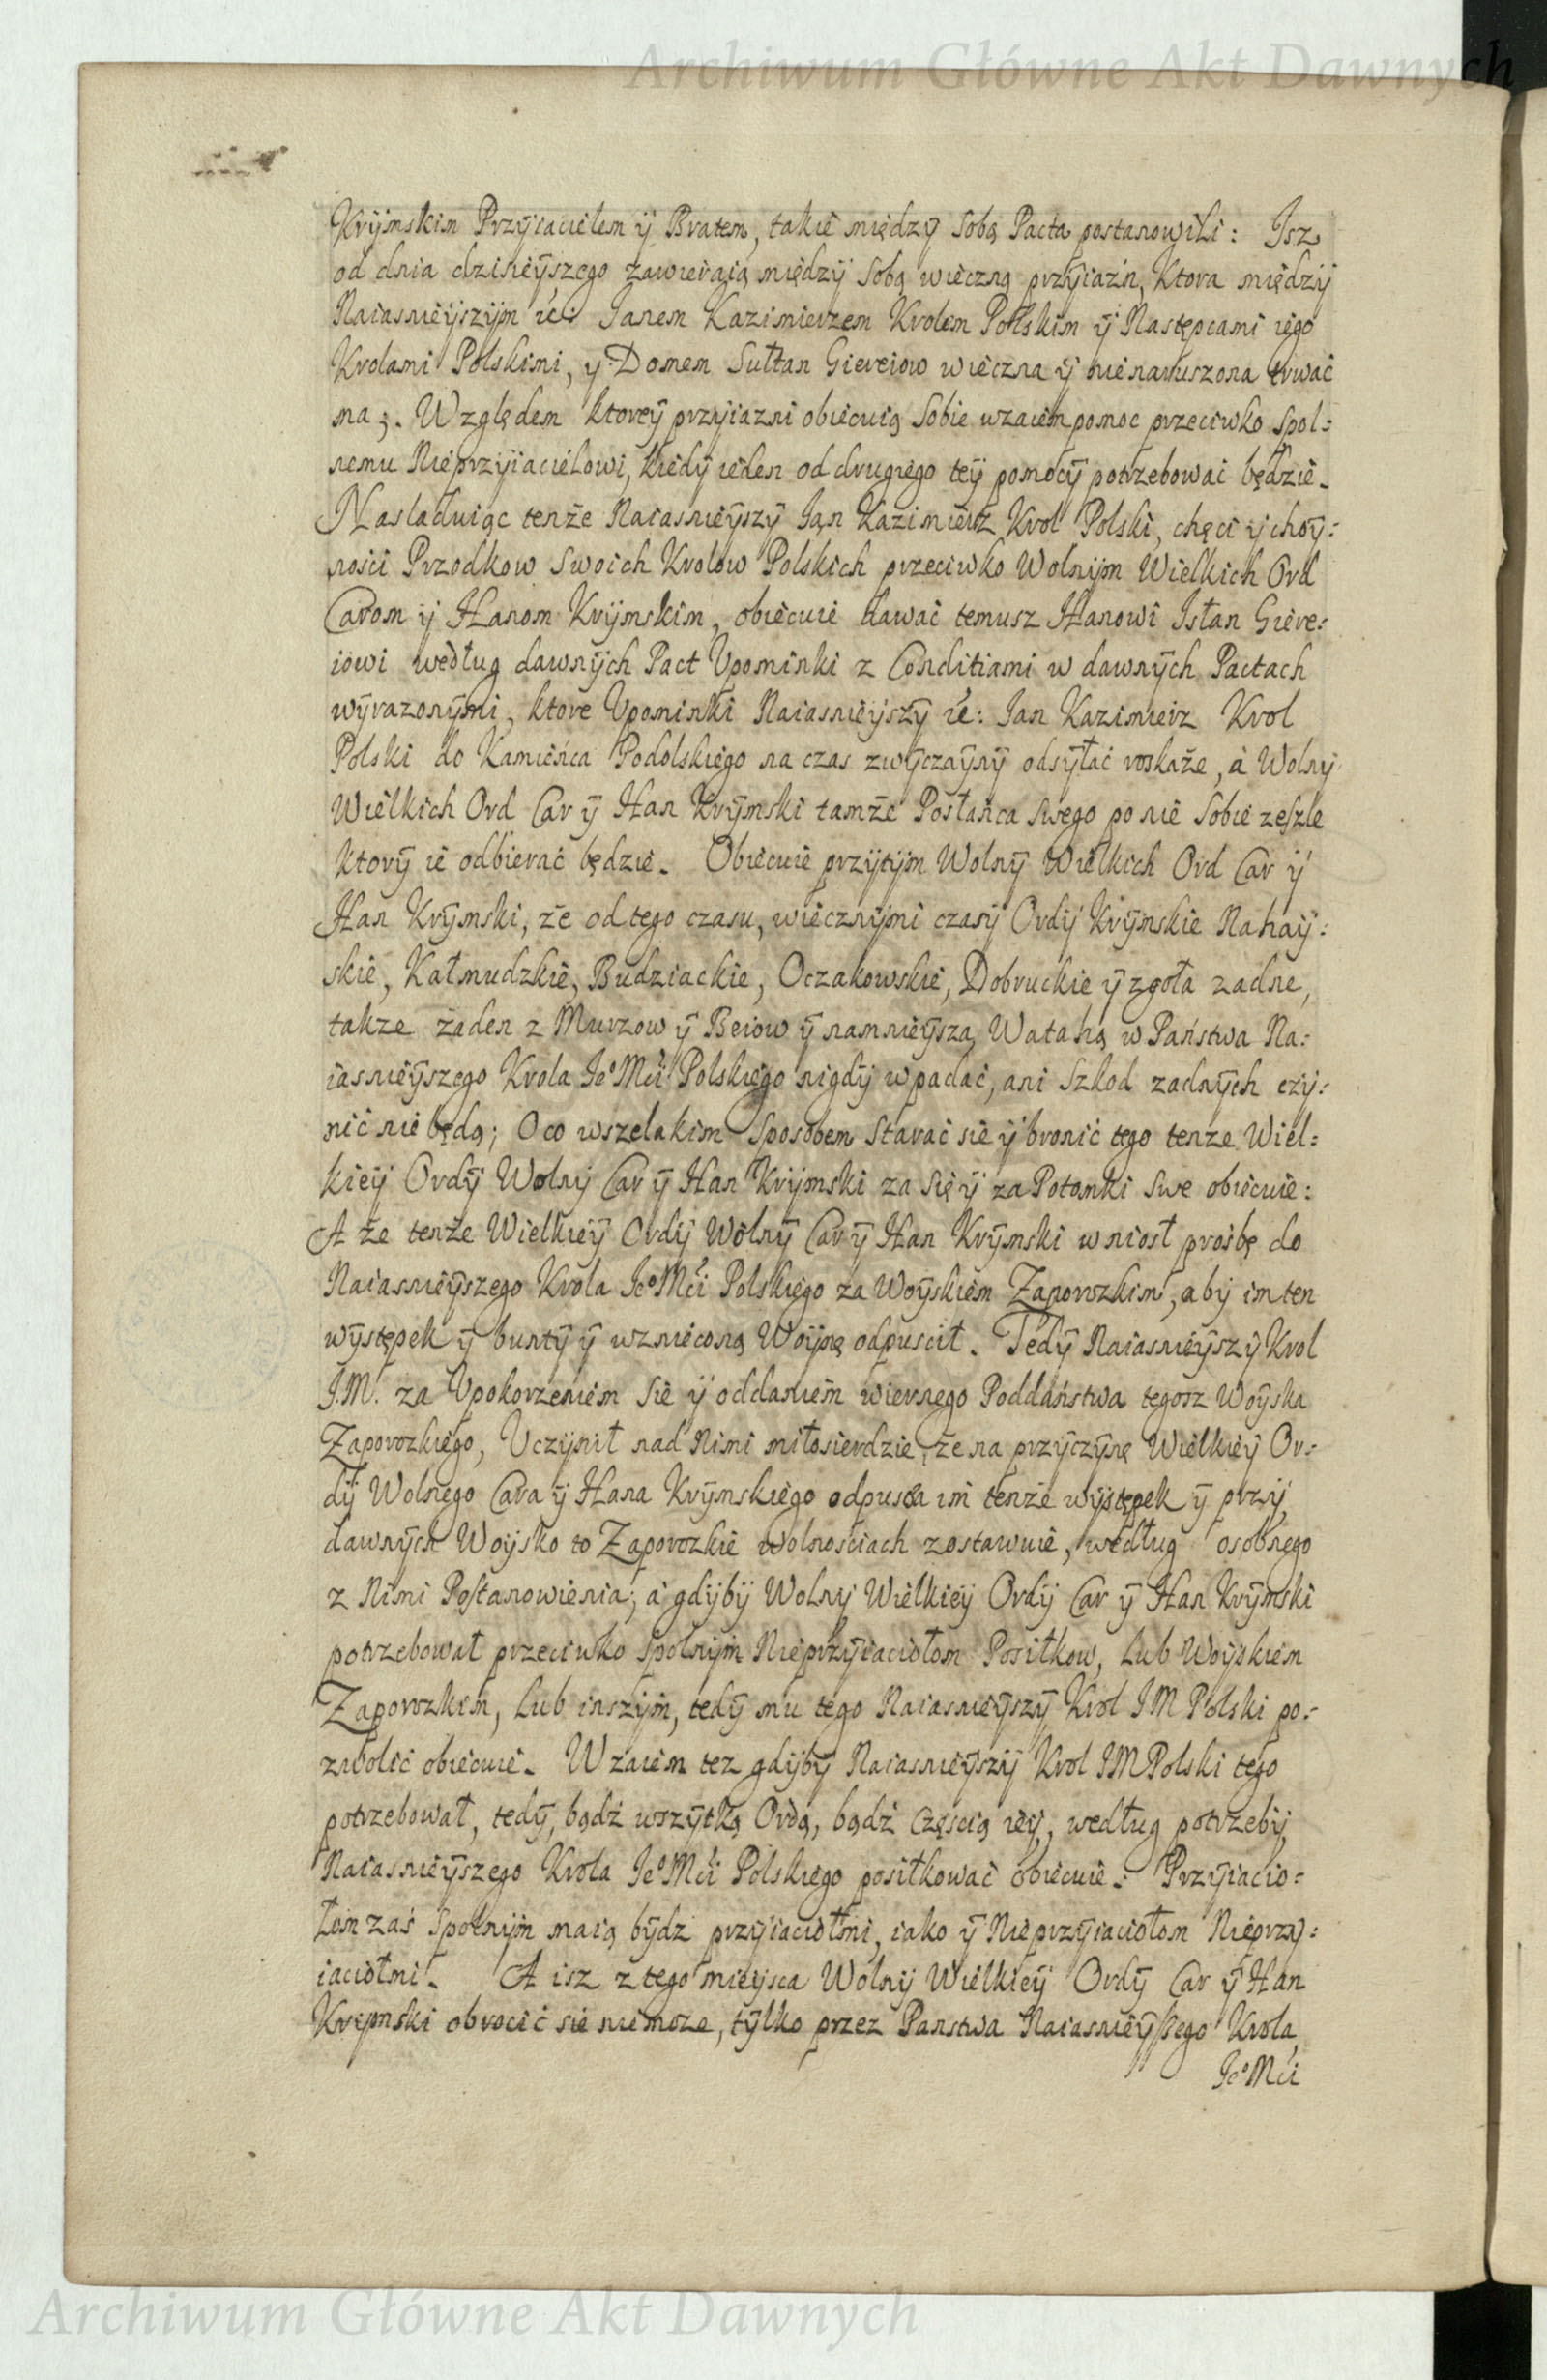 Archiwum Główne Akt Dawnych
Krÿmskim Przÿiacielem ÿ Bratem, takie międzÿ Sobą Pacta postanowili: Isz
od dnia dzisieÿszego zawieraią międzÿ Sobą wieczną przÿiazń, Ktora międzÿ
Naiasnieÿszÿm &c: Ianem Kazimierzem Krolem Polskim ÿ Następcami iego
Krolami Polskimi, y Domem Sułtan Giereiow wieczna ÿ nienaruszona trwać
ma;. Względem ktoreÿ przÿiazni obiecuią Sobie wzaiem pomoc przeciwko Spol:
nemu Nieprzÿiacielowi, kiedÿ ieden od drugiego teÿ pomocÿ potrzebować będzie.
Nasladuiąc tenże Naiasnieÿszÿ Ian Kazimierz Krol Polski, chęci ÿ choÿ:
nosci Przodkow Swoich Krolow Polskich przeciwko Wolnÿm Wielkich Ord
Carom ÿ Hanom Krÿmskim, obiecuie dawać temusz Hanowi Isłan Giere:
iowi według dawnÿch Pact Vpominki z Conditiami w dawnÿch Pactach
wÿrazonÿmi, ktore Vpominki Naiasnieÿszÿ &c: Ian Kazimierz Krol
Polski do Kamieńca Podolskiego na czas zwÿczaÿnÿ odsÿłać roskaże, à Wolnÿ
Wielkich Ord Car ÿ Han Krÿmski tamże Posłańca swego po nie Sobie zeszle
ktorÿ ie odbierać będzie. Obiecuie przÿtÿm Wolnÿ Wielkich Ord Car ÿ
Han Krÿmski, że od tego czasu, wiecznÿmi czasÿ Ordÿ Krÿmskie Nahaÿ:
skie, Kałmudzkie, Budziackie, Oczakowskie, Dobruckie ÿ zgoła zadne,
takze żaden z Murzow ÿ Beiow ÿ namnieÿszą Watahą w Państwa Na:
iasnieÿszego Krola Ie^o Mći Polskiego nigdÿ wpadać, ani Szkod zadnÿch czÿ:
nić nie będą; Oco wszelakim Sposobem Starać się ÿ bronić tego tenże Wiel:
kieÿ Ordÿ Wolnÿ Car ÿ Han Krÿmski za się ÿ za Potomki Swe obiecuie:
A że tenże Wielkieÿ Ordÿ Wolnÿ Car ÿ Han Krÿmski wniosł prośbę do
Naiasnieÿszego Krola Ie^o Mći Polskiego za Woÿskiem Zaporozkim, abÿ im ten
wÿstępek ÿ buntÿ ÿ wznieconą Woÿnę odpuscił. Tedÿ Naiasnieÿszÿ Krol
I.M. za Vpokorzeniem Się ÿ oddaniem wiernego Poddaństwa tegosz Woÿska
Zaporozkiego, Vczÿnił nad Nimi miłosierdzie, że na przÿczÿnę Wielkieÿ Or:
dÿ Wolnego Cara ÿ Hana Krÿmskiego odpuscza im tenże wÿstępek ÿ przÿ
dawnÿch Woÿsko to Zaporozkie wolnosciach zostawuie, według osobnego
z Nimi Postanowienia; a gdÿbÿ Wolnÿ Wielkieÿ Ordÿ Car ÿ Han Krÿmski
potrzebował przeciwko Spolnÿm Nieprzÿiaciołom Posiłkow, Lub Woÿskiem
Zaporozkim, Lub inszÿm, tedÿ mu tego Naiasnieÿszÿ Krol IM Polski po:
zwolić obiecuie. Wzaiem tez gdÿbÿ Naiasnieÿszÿ Krol IM Polski tego
potrzebował, tedÿ, bądź wszÿtką Ordą, bądź Częscią ieÿ, według potrzebÿ
Naiasnieÿszego Krola Ie^o Mći Polskiego posiłkować obiecuie. Przÿiacio:
łom zaś Społnÿm maią bÿdz przÿiaciołmi, iako ÿ Nieprzÿiaciołom Nieprzÿ:
iaciołmi. A isz z tego mieÿsca Wolnÿ Wielkieÿ Ordÿ Car ÿ Han
Krÿmski obrocić się niemoze, tÿlko przez Panstwa Naiasnieÿszego Krola
Ie^o Mći
Archiwum Główne Akt Dawnych